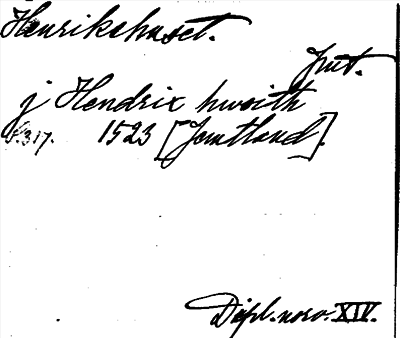 Henrikshuset.
Jmt.
j Hendrix hwsith
s.317. 1523 [Jemtland].
Dipl. norv. XIV.